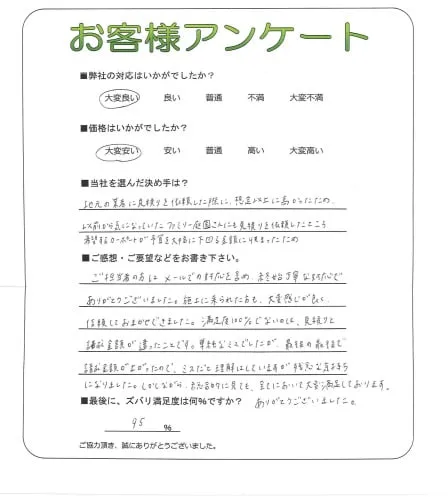 お客様アンケート
■弊社の対応はいかがでしたか?
大変良い 良い 普通 不満 大変不満
■価格はいかがでしたか?
大変安い 安い 普通 高い 大変高い
■当社を選んだ決め手は?
地元の業者に見積りを依頼した際に、想定以上に高かったため、
以前から気になっていたファミリー庭園さんにも見積りを依頼したところ
希望するカーポートが予算を大幅に下回る金額に収まったため
■ご感想・ご要望などをお書き下さい。
ご担当者の方はメールでの対応も含め、終始丁寧な対応で
ありがとうございました。施工に来られた方も、大変感じが良く、
信頼しておまかせできました。満足度100%でないのは、見積りと
請求金額が違ったことです。単純なミスでしたが、最後の最後で
請求金額が上がったので、ミスだと理解はしていますが残念な気持ち
になりました。しかしながら、総合的に見ても、全てにおいて大変満足しております。
ありがとうございました。
■最後に、ズバリ満足度は何%ですか?
95 %
ご協力頂き、誠にありがとうございました。